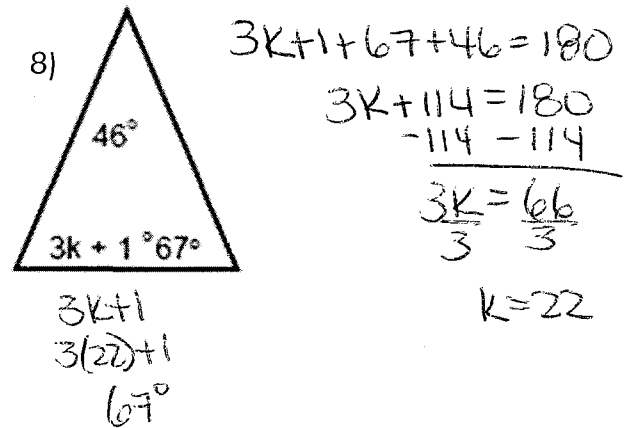 8)
46°
3k + 1 °67°
3k+1+67+46=180
3k+114=180
-114 -114
3k = 66
3 3
k=22
3k+1
3(22)+1
67°